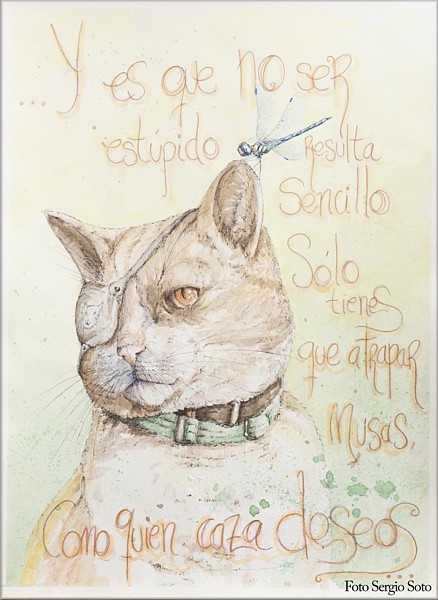 ...Y es que no ser
estúpido resulta
sencillo
Sólo
tienes
que atrapar
Musas,
Como quien caza deseos...
Foto Sergio Soto